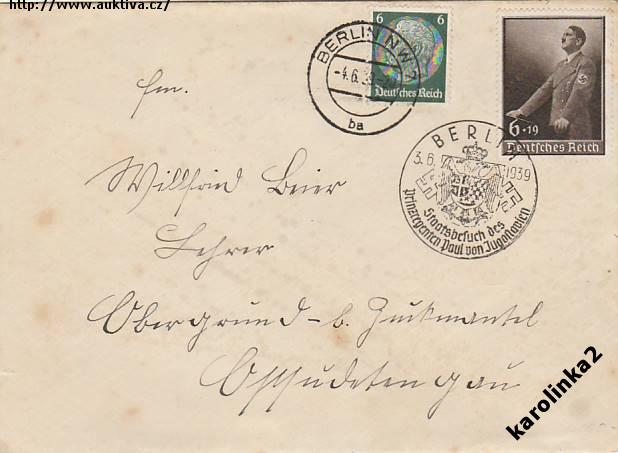 http://www.auktiva.cz/
BERLIN NW 7
-4.6.39
ba
6 6
Deutsches Reich
6+19
Deutsches Reich
BERLIN
3.6. 1939
Staatsbesuch des
Prinzregenten Paul von Jugoslawien
Willfried Beier
Lehrer
Obergrund - b. Zuckmantel
Ostsudetengau
karolinka2